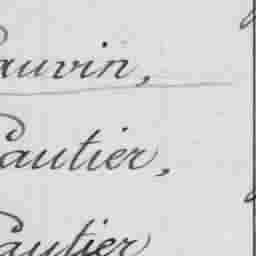 auvin,
Gautier,
Gautier